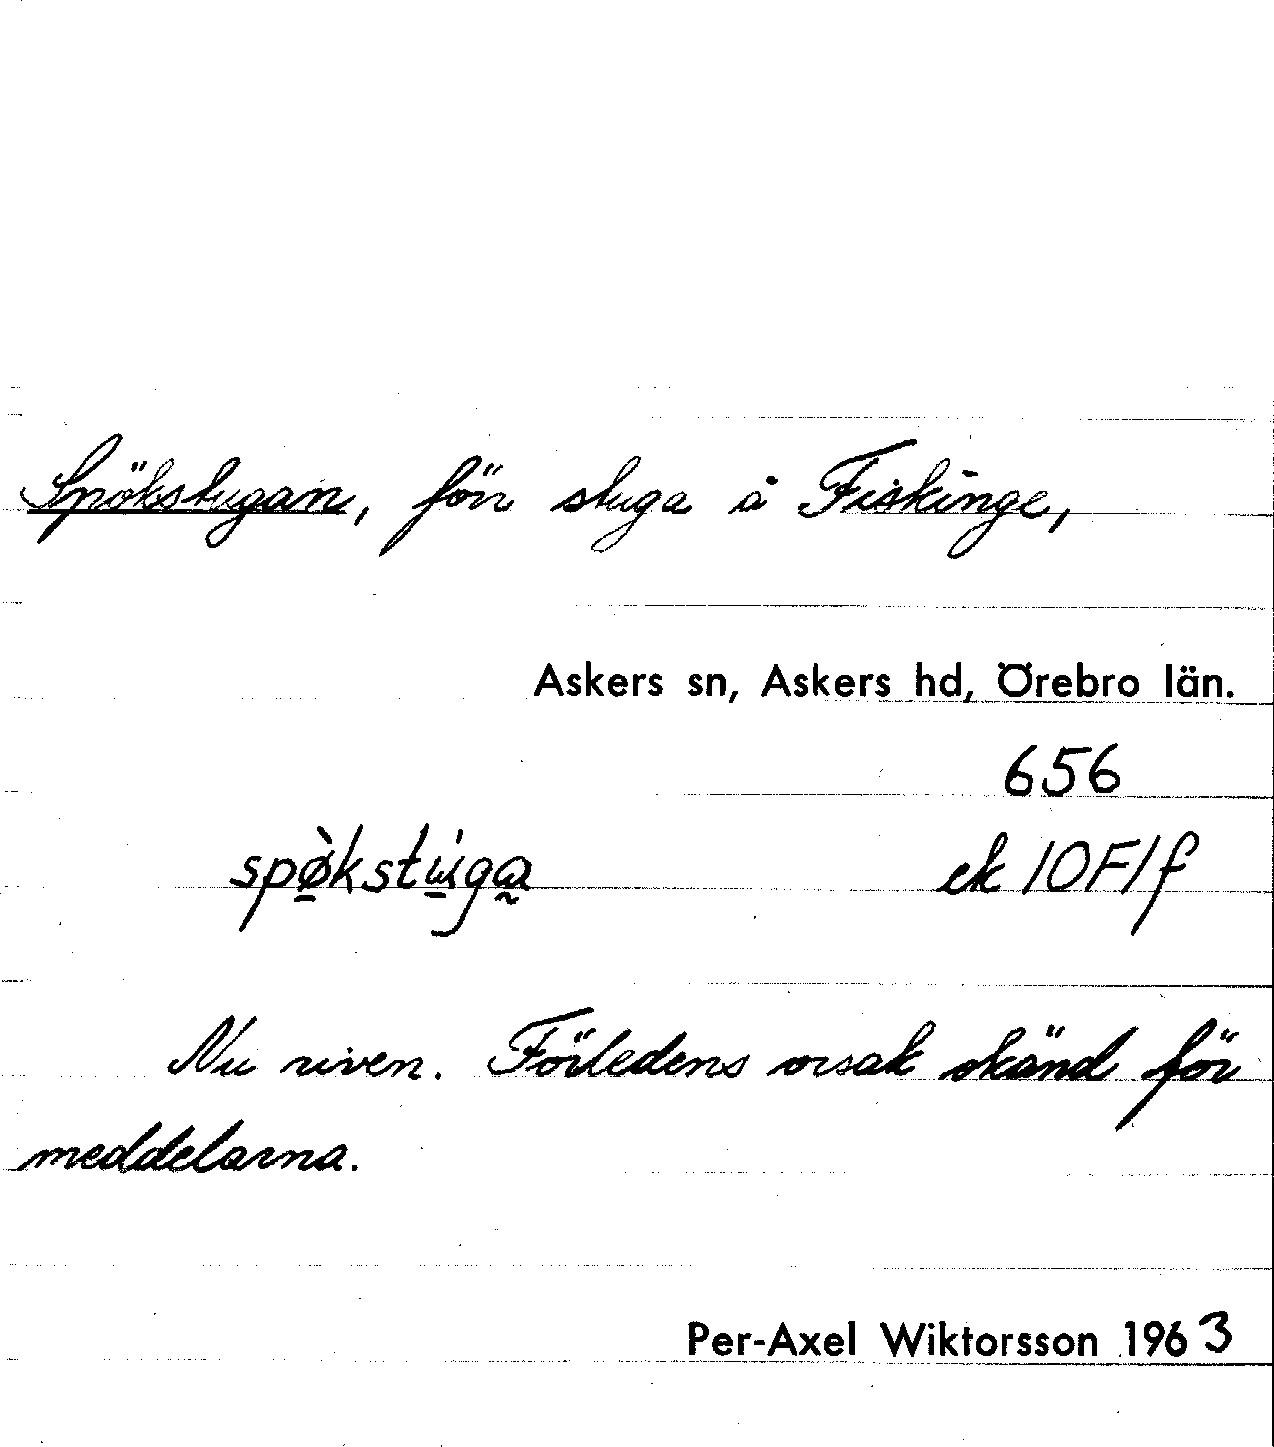 Spökstugan, förr stuga å Fiskinge,
Askers sn, Askers hd, Örebro län.
656
spø̀kstẃga ek 10F1f
Nu riven. Förledens orsak okänd för
meddelarna.
Per-Axel Wiktorsson 1963